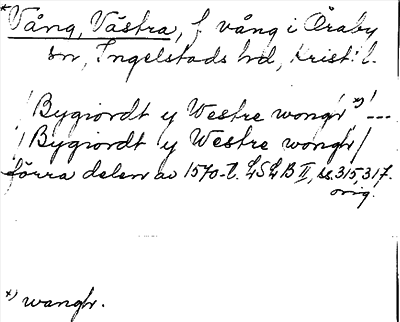 *Vång, Västra, f. vång i Öraby
sn, Ingelstads hd, Krist. l.
/Bygiordt y Westre wongr *)/ ---
/Bygiordt y Westre wongr/
förra delen av 1570-t. LSLB II, ss. 315, 317.
orig.
*) wangr.